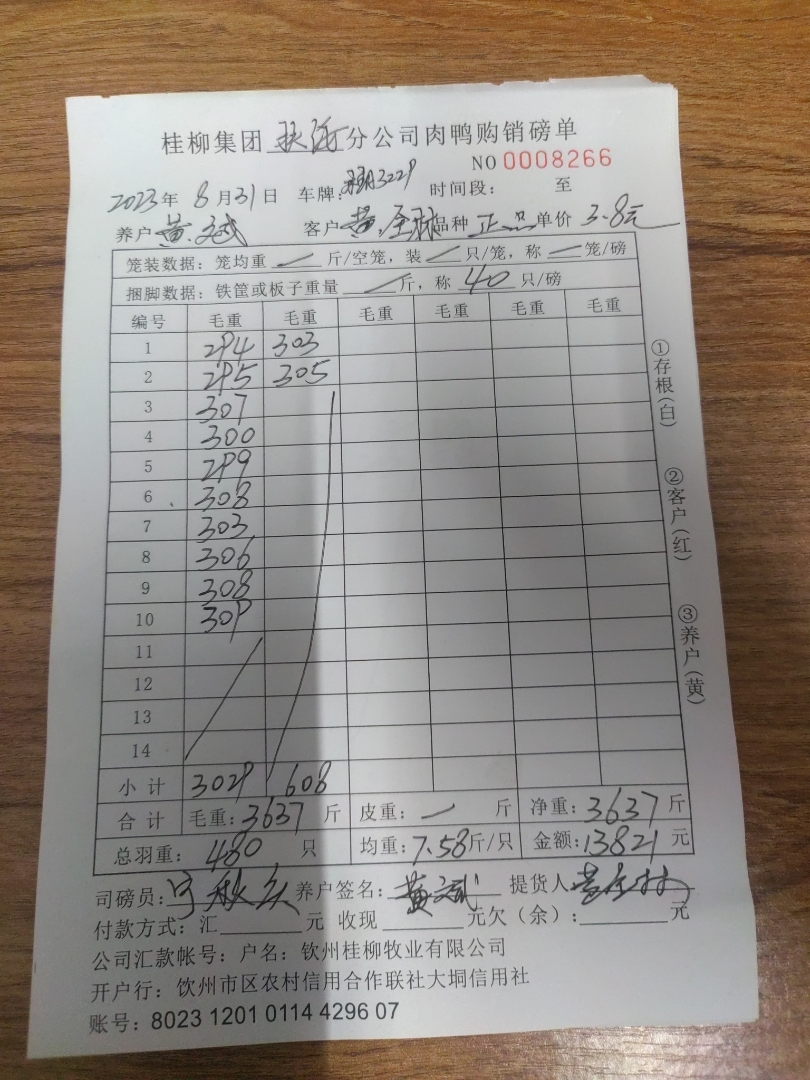 桂柳集团 分公司肉鸭购销磅单
NO 0008266
2023年 8月31日 车牌: 3229 时间段: 至
养户 黄文斌 客户 黄 品种 正品 单价 3.8元
笼装数据：笼均重 — 斤/空笼，装 — 只/笼，称 — 笼/磅
捆脚数据：铁筐或板子重量 — 斤，称 40 只/磅
编号 毛重 毛重 毛重 毛重 毛重 毛重
1 294 303
2 295 305
3 307
4 300
5 299
6 308
7 303
8 306
9 308
10 309
11
12
13
14
小计 3029 608
合计 毛重:3637斤 皮重: — 斤 净重:3637斤
总羽重: 480 只 均重:7.58斤/只 金额:13821元
司磅员: 养户签名: 黄文斌 提货人
付款方式: 汇 元 收现 元欠（余）: 元
公司汇款帐号: 户名: 钦州桂柳牧业有限公司
开户行: 钦州市区农村信用合作联社大垌信用社
账号: 8023 1201 0114 4296 07
①存根(白)
②客户(红)
③养户(黄)